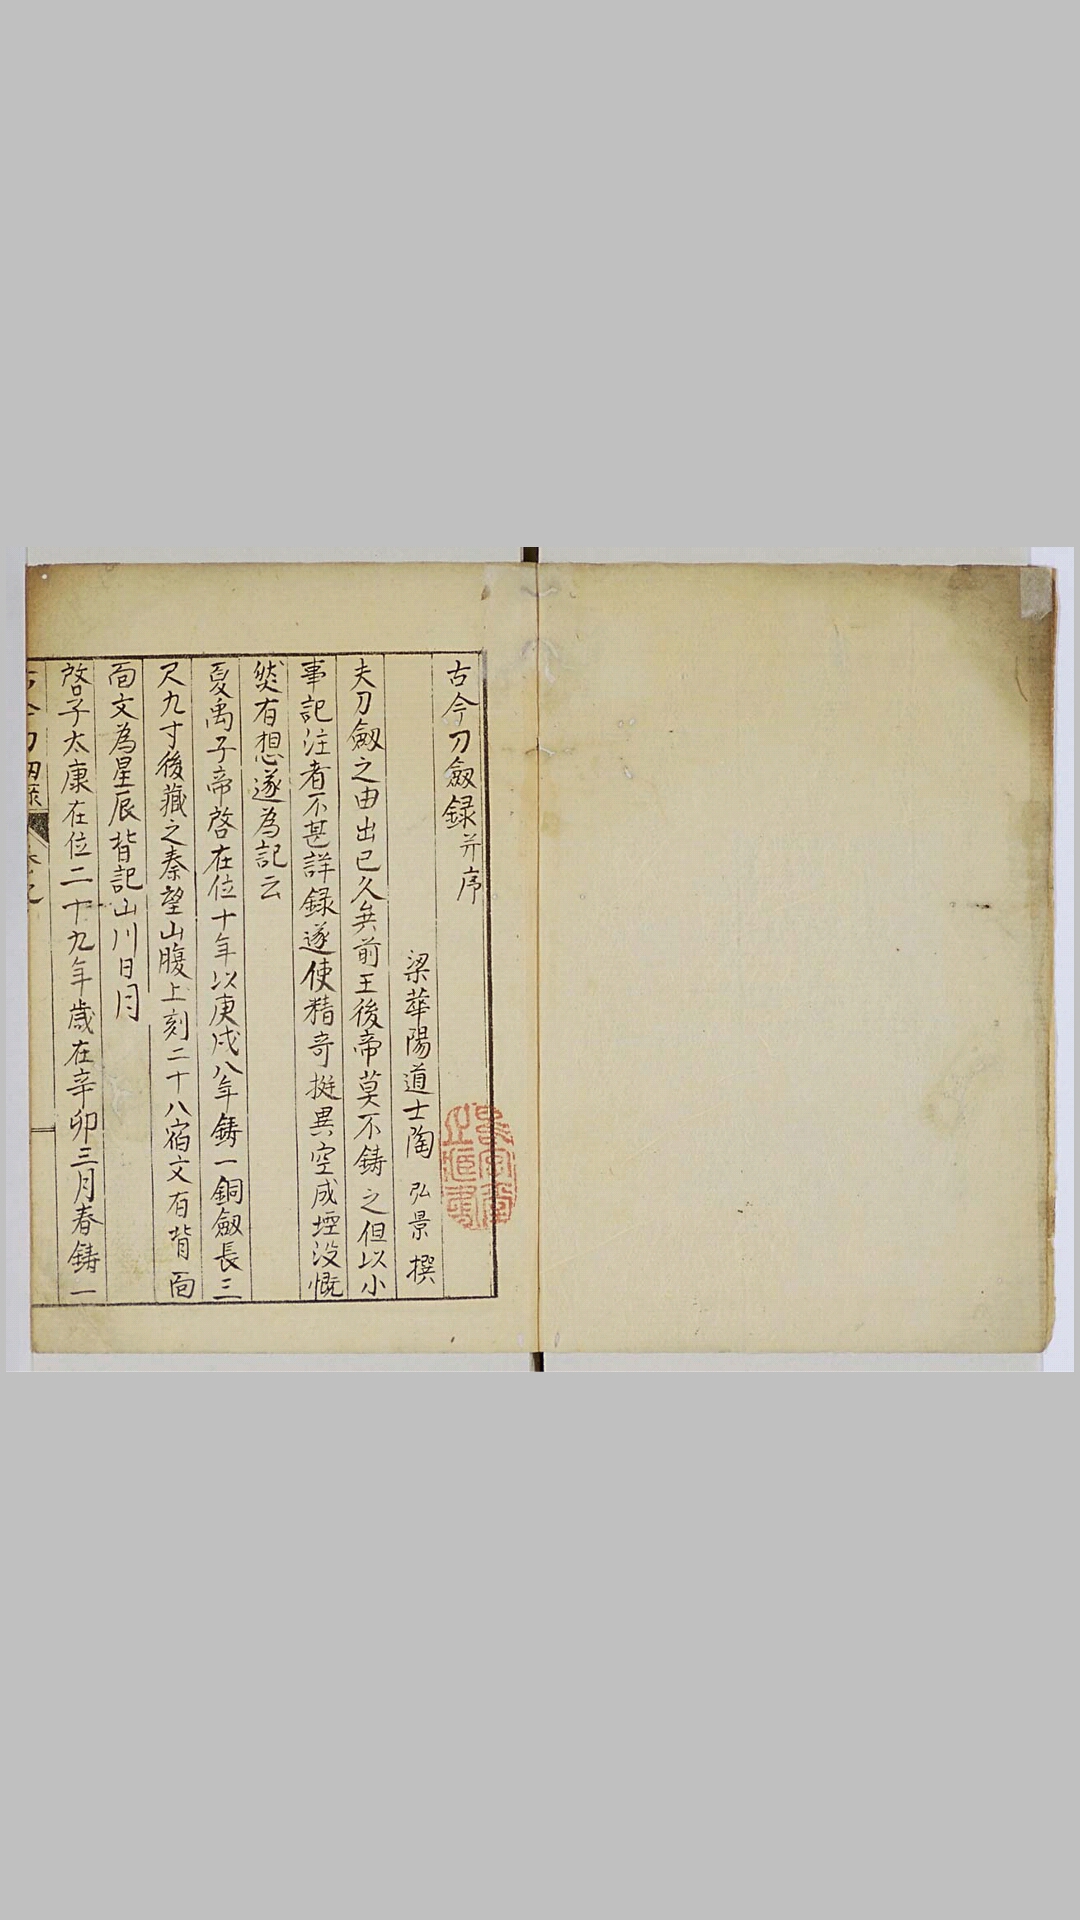 古今刀劔録并序
梁華陽道士陶弘景撰
夫刀劔之由出已久矣前王後帝莫不鋳之但以小
事記注者不甚詳録遂使精奇挺異空成堙没慨
然有想遂為記云
夏禹子帝啓在位十年以庚戌八年鋳一銅劔長三
尺九寸後藏之秦望山腹上刻二十八宿文有背面
面文為星辰背記山川日月
啓子太康在位二十九年歳在辛卯三月春鋳一